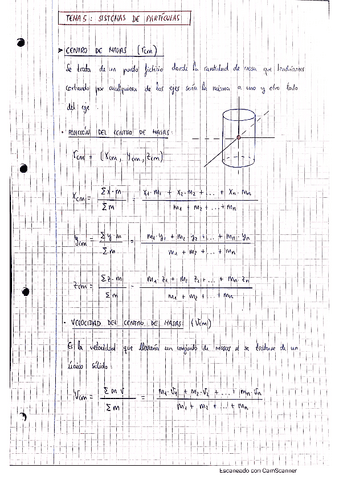 TEMA 5: SISTEMAS DE PARTÍCULAS
CENTRO DE MASAS (rcm)
Se trata de un punto ficticio donde la cantidad de masa que tendríamos
cortando por cualquiera de los ejes sería la misma a uno y otro lado
del eje.
· POSICIÓN DEL CENTRO DE MASAS:
rcm = (xcm, ycm, zcm)
xcm = Σx·m / Σm = x1·m1 + x2·m2 + ... + xn·mn / m1 + m2 + ... + mn
ycm = Σy·m / Σm = m1·y1 + m2·y2 + ... + mn·yn / m1 + m2 + ... + mn
zcm = Σz·m / Σm = m1·z1 + m2·z2 + ... + mn·zn / m1 + m2 + ... + mn
· VELOCIDAD DEL CENTRO DE MASAS (Vcm)
Es la velocidad que llevaría un conjunto de masas si se tratase de un
único sólido:
Vcm = Σm·v / Σm = m1·v1 + m2·v2 + ... + mn·vn / m1 + m2 + ... + mn
Escaneado con CamScanner